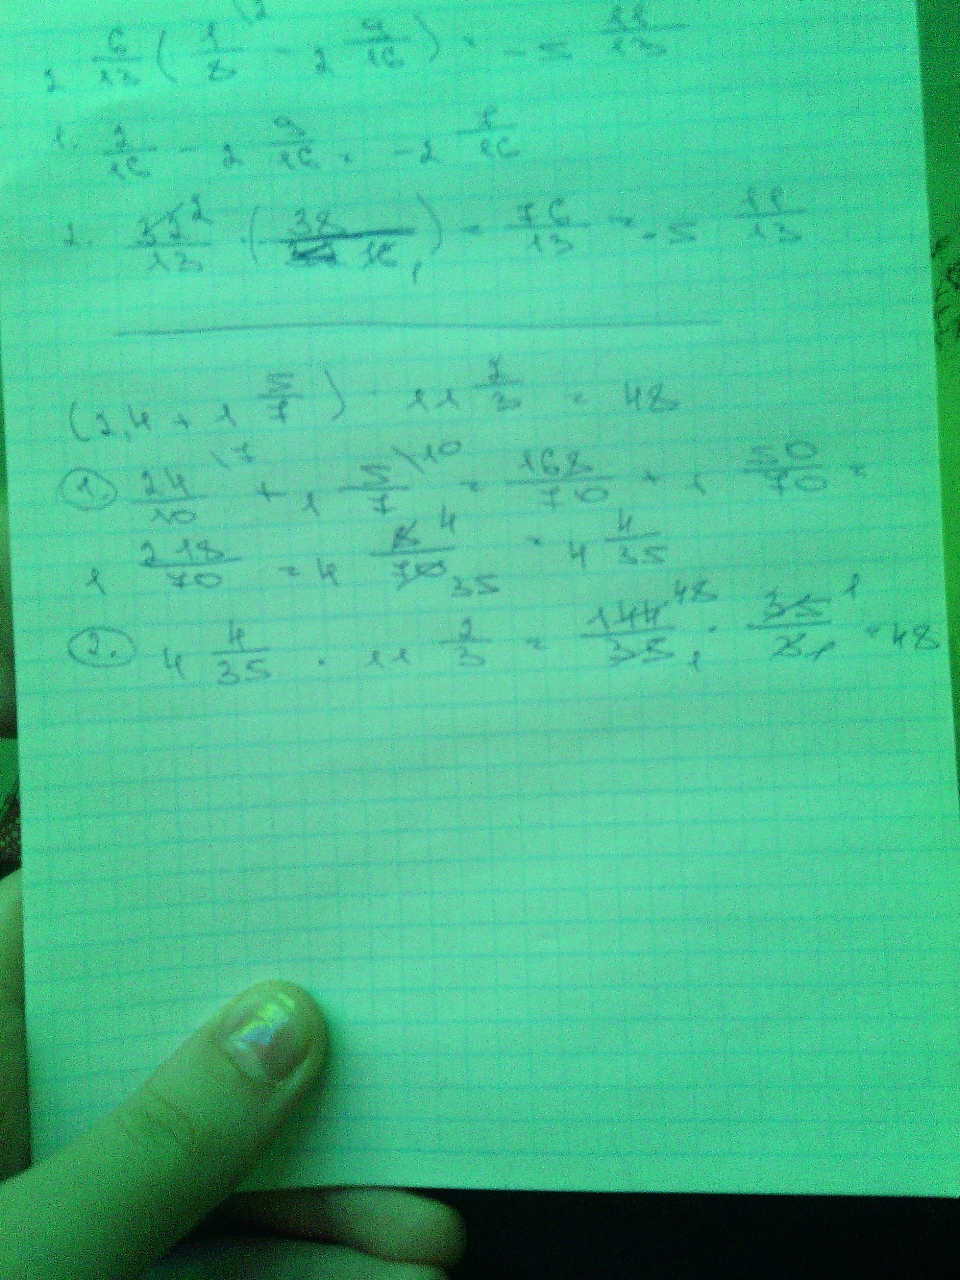 2 6/13 ( 1/8 \2 - 2 9/16 ) = -5 11/13
1. 2/16 - 2 9/16 = -2 7/16
2. 32 2/13 · ( 38/16 1 ) = 76/13 = -5 11/13
(2,4 + 1 5/7 ) · 11 2/3 = 48
1. 24/10 \7 + 1 5/7 \10 = 168/70 + 1 50/70 =
1 218/70 = 4 8/70 4 35 = 4 4/35
2. 4 4/35 · 11 2/3 = 144/35 48 1 · 35/3 1 1 = 48